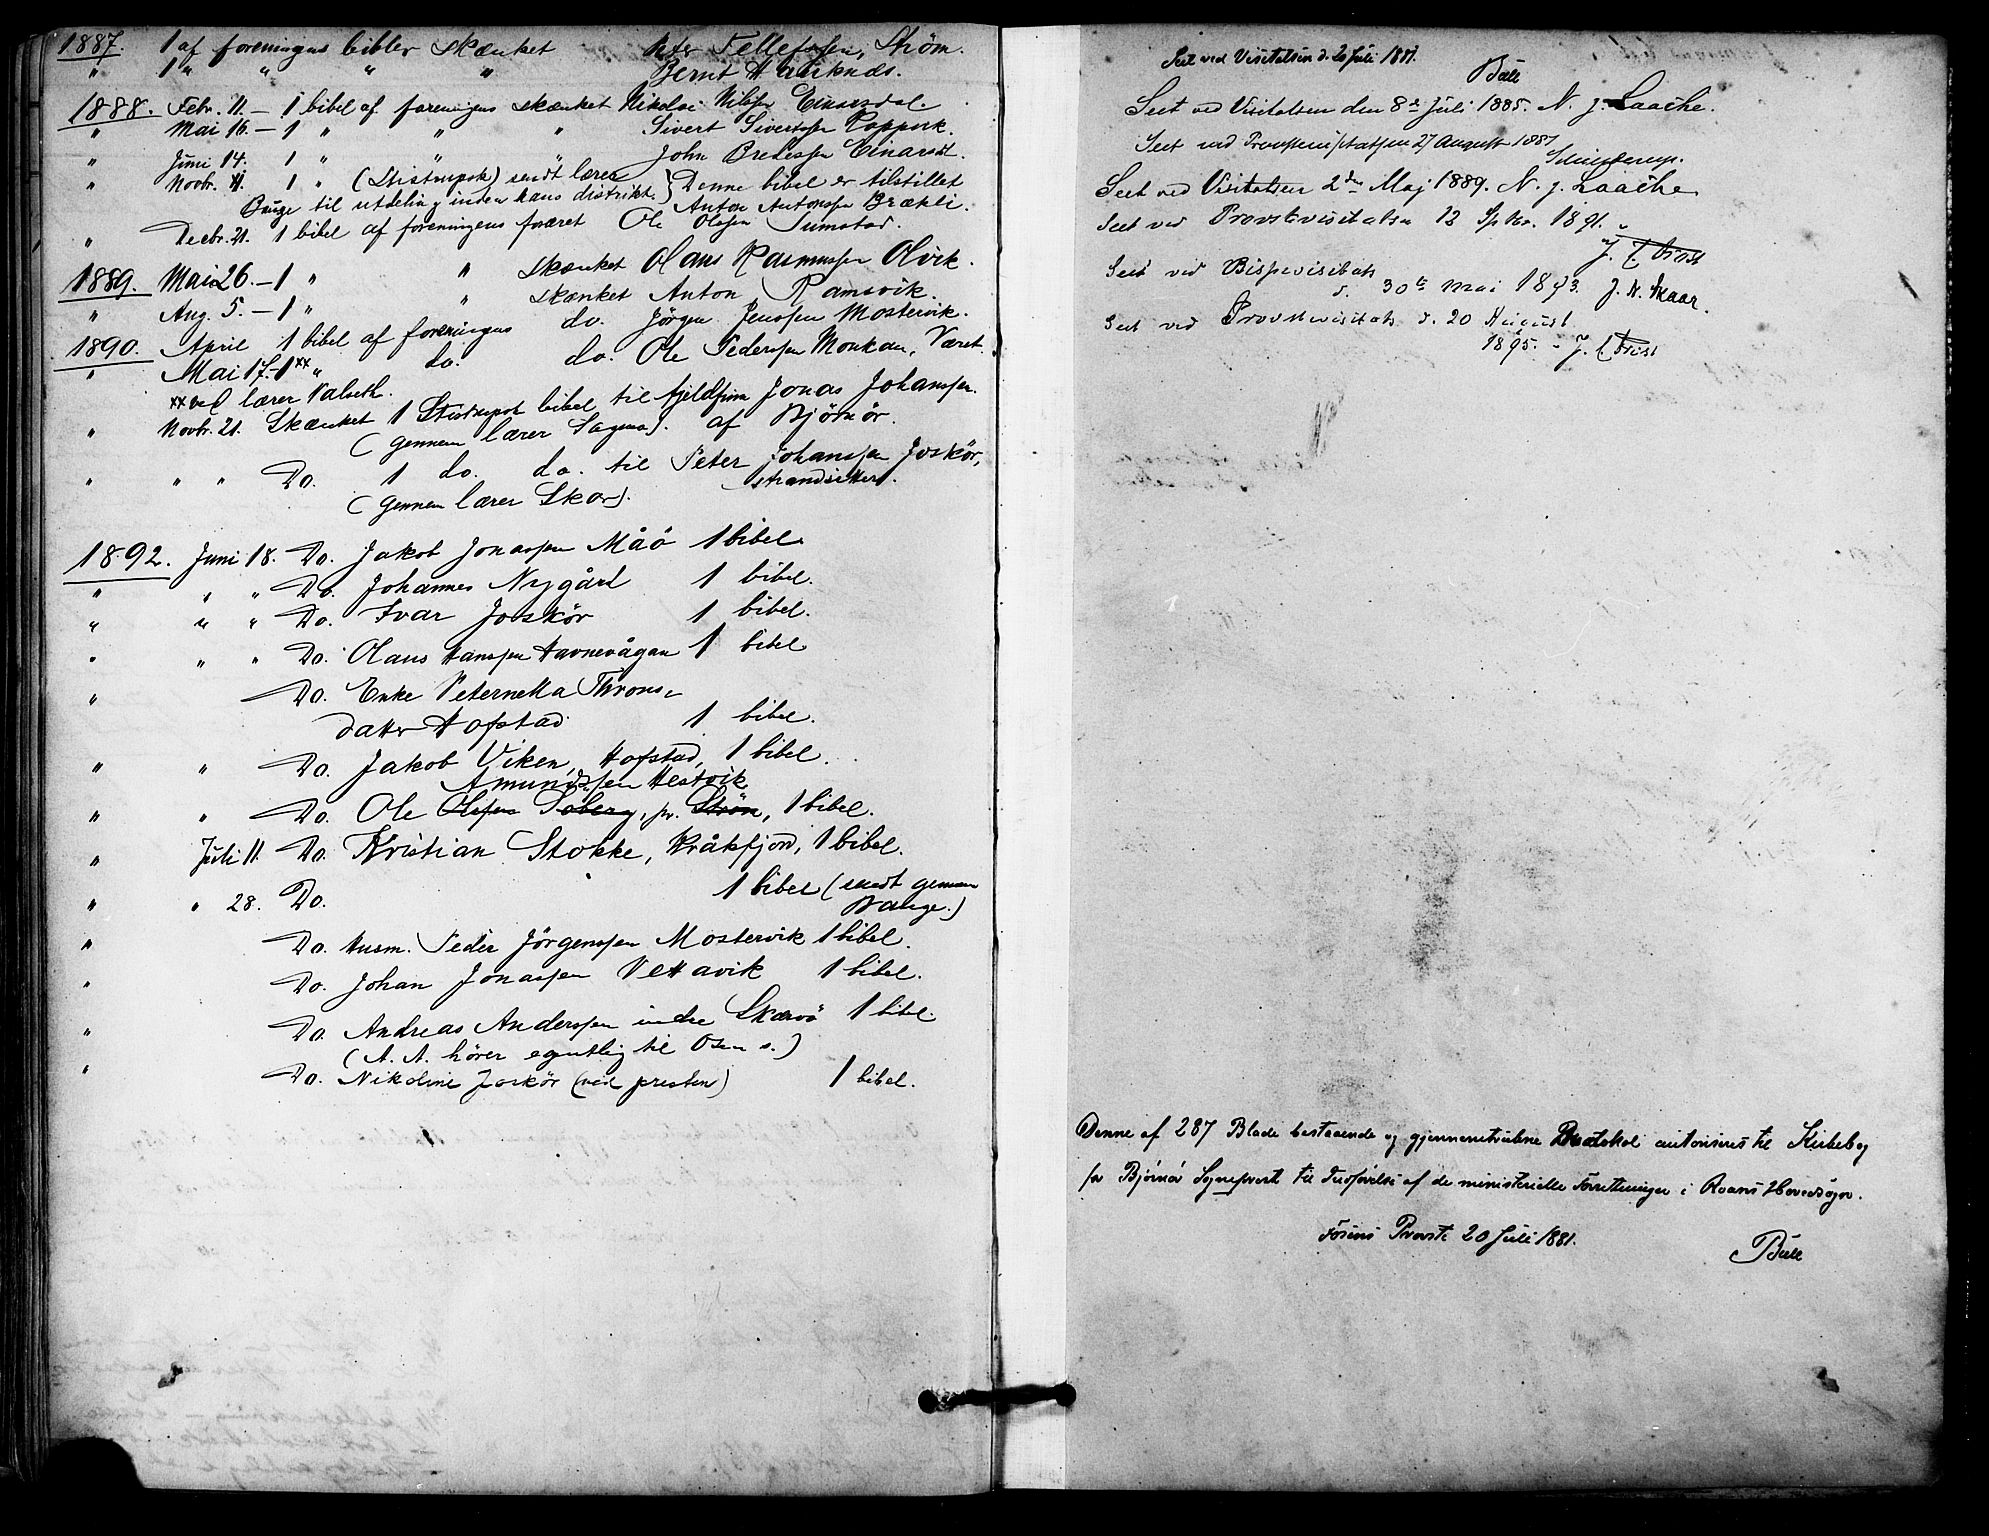 1887. 1 af foreningens bibler skænket Peter Tellefsen, Strøm.
" 1 " " " " Bernt Hauknæs.
1888. Febr. 11. – 1 bibel af foreningens skænket Nikolai Nilssen Einarsdal.
" Mai 16. – 1 " " " Sivert Sivertssen
" Juni 14. 1 " " " John Bredessen Einarsdl.
" Novbr. 11. 1 " (Stiftsrupsk) sendt lærer } Denne bibel er tilstillet
Bauge til utdeling inden hans distrikt. } Anton Antonssen Brækli.
" Decbr. 21. 1 bibel af foreningens foræret Ole Olssen Sumstad.
1889. Mai 26. – 1 " " skænket Olaus Rasmussen Olvik.
" Aug. 5. – 1 " " skænket Anton Ramsvik.
1890. April 1 bibel af foreningens do. Jörgen Jenssen Mostervik.
" Mai 17. – 1 xx " do. do. Ole Pederssen Monkan, Været
xx ved lærer Valseth.
" Novbr. 21. Skænket 1 bibel til fjeldfinn Jonas Johanssen
(gennem lærer Sagmo). af Björnör.
" " " Do. 1 do. do. til Peter Johanssen Joskör,
(gennem lærer Skar). strandsitter.
1892. Juni 18. Do. Jakob Jonassen Måö 1 bibel
" " " Do. Johannes Nygård 1 bibel.
" " " Do. Ivar Joskör 1 bibel.
" " " Do. Olaus Hanssen Havnevågan 1 bibel
" Do. Enke Peternella Throns-
datter Hofstad 1 bibel.
" " Do. Jakob Viken, Hofstad, 1 bibel.
Amundssen Hestvik
" " Do. Ole Olssen Soberg, pr. Strön, 1 bibel.
" Juli 11. Do. Kristian Stokke, Kråkfjord, 1 bibel.
" " 28. Do. 1 bibel (sendt gennem
Bauge.)
" Do. Husm. Peder Jörgenssen Mostervik 1 bibel.
" Do. Johan Jonassen Vettavik 1 bibel.
" Do. Andreas Anderssen indre Skjærvö 1 bibel.
(A. A. hörer egentlig til Osen s.)
" Do. Nikoline Joskör (ved presten) 1 bibel.
Seet ved Visitatsen d. 20 Juli 1881.
Bull
Seet ved Visitatsen den 8de Juli 1885. N. J. Laache.
Seet ved Provstevisitatsen 27 August 1887
Seet ved Visitatsen 2den Maj 1889. N. J. Laache
Seet ved Provstevisitatsen 12 Sptbr. 1891.
J. C. Brost
Seet ved Bispevisitats
d. 30te mai 1893. J. N. Skaar.
Seet ved Provstevisitats d. 20 August
1895. – J. C. Brost
Denne af 287 Blade bestaaende og gjennemtrukne Protokol autoriseres til Kirkebog
for Bjørnør Sognepræst til Indførelse af de ministerielle Forretninger i Roans Hovedsogn.
Fosens Provsti 20 Juli 1881.
Bull